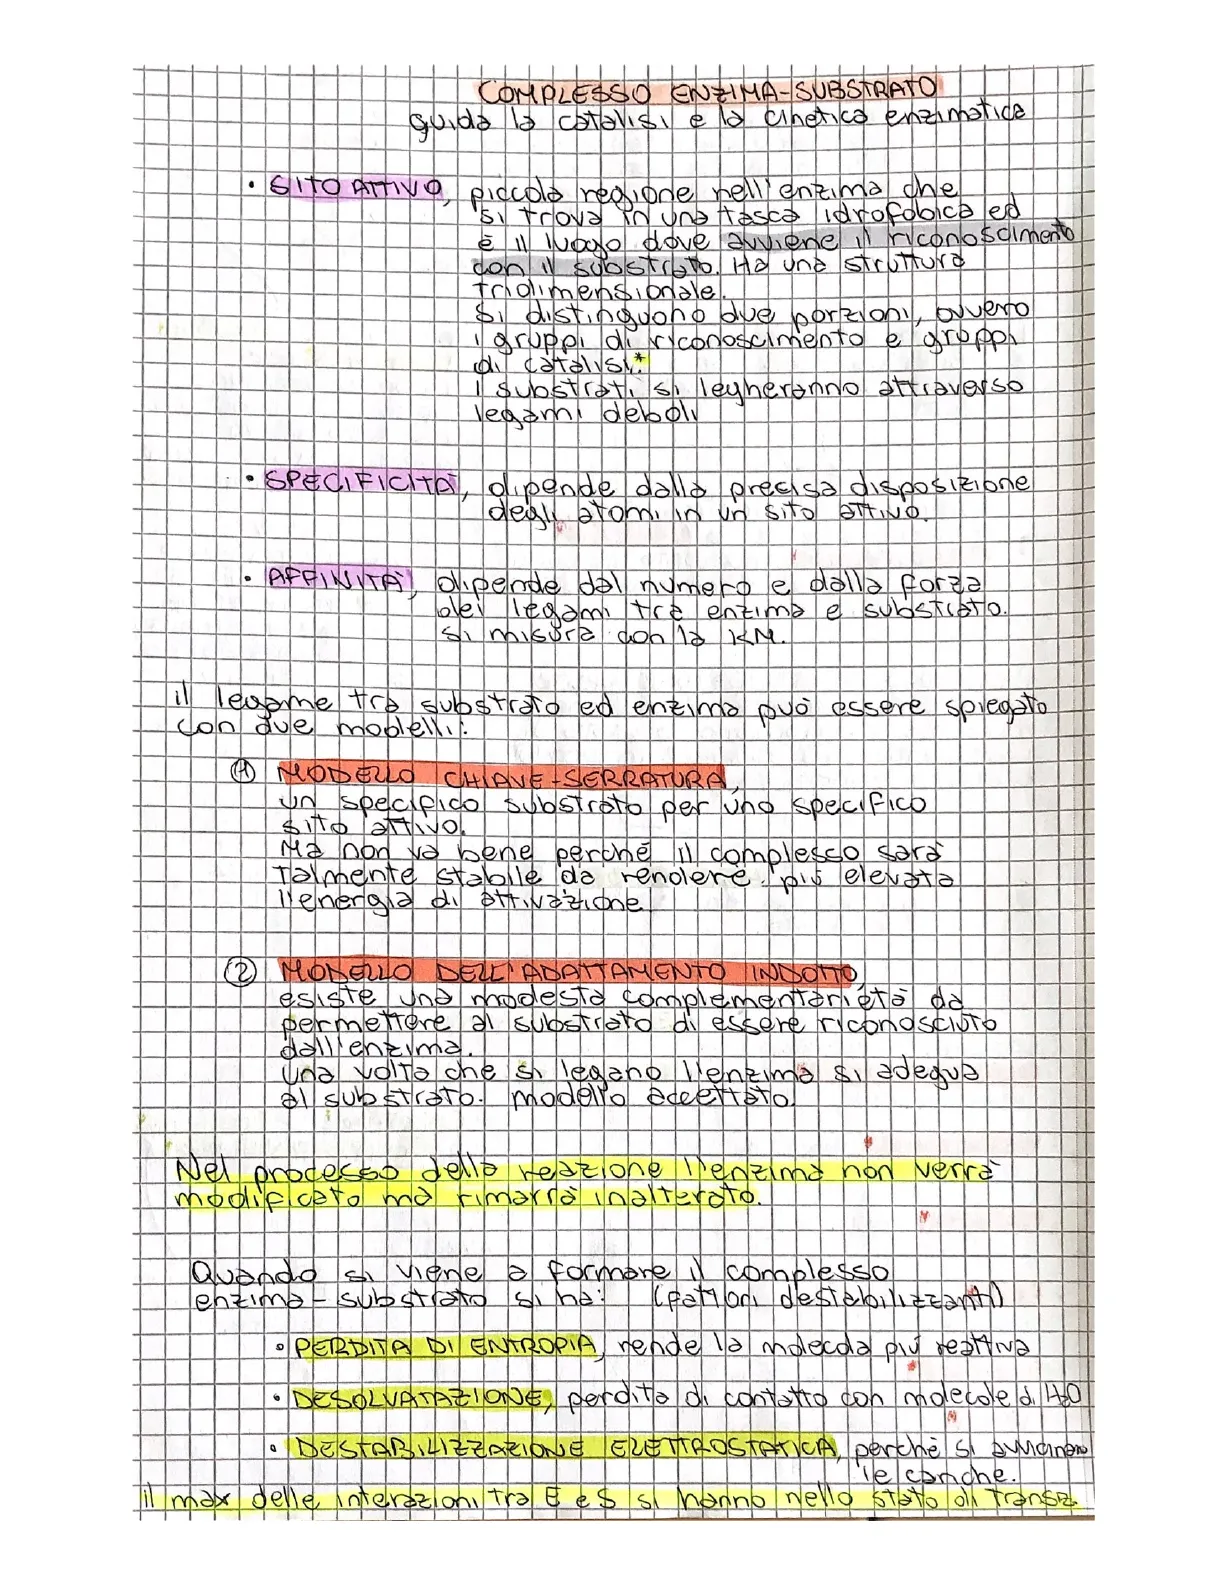 COMPLESSO ENZIMA-SUBSTRATO
guida la catalisi e la cinetica enzimatica
• SITO ATTIVO, piccola regione nell'enzima che
si trova in una tasca idrofobica ed
è il luogo dove avviene il riconoscimento
con il substrato. Ha una struttura
tridimensionale.
Si distinguono due porzioni, ovvero
i gruppi di riconoscimento e gruppi
di catalisi.*
I substrati si legheranno attraverso
legami deboli
• SPECIFICITÀ, dipende dalla precisa disposizione
degli atomi in un sito attivo.
• AFFINITÀ, dipende dal numero e dalla forza
dei legami tra enzima e substrato.
Si misura con la KM.
il legame tra substrato ed enzima può essere spiegato
con due modelli:
① MODELLO CHIAVE-SERRATURA,
un specifico substrato per uno specifico
sito attivo.
Ma non va bene perché il complesso sarà
talmente stabile da rendere più elevata
l'energia di attivazione
② MODELLO DELL'ADATTAMENTO INDOTTO,
esiste una modesta complementarietà da
permettere al substrato di essere riconosciuto
dall'enzima.
Una volta che si legano l'enzima si adegua
al substrato. modello accettato.
Nel processo della reazione l'enzima non verrà
modificato ma rimarrà inalterato.
Quando si viene a formare il complesso
enzima-substrato si ha: (fattori destabilizzanti)
• PERDITA DI ENTROPIA, rende la molecola più reattiva
• DESOLVATAZIONE, perdita di contatto con molecole di H2O
• DESTABILIZZAZIONE ELETTROSTATICA, perché si avvicinano
le cariche.
il max delle interazioni tra E e S si hanno nello stato di transiz.